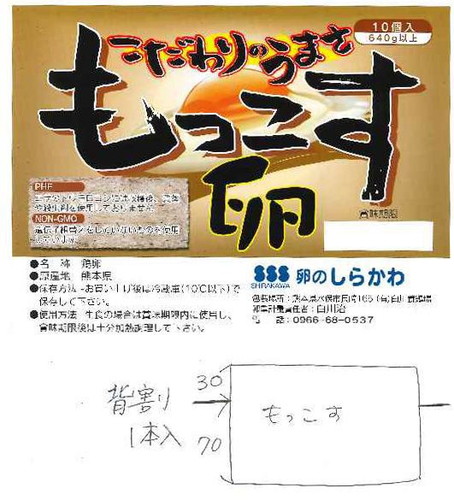 10個入
640g以上
こだわりのうまさ
もっこす
卵
PHF
NON-GMO
遺伝子組替えをしていないものを使用
賞味期限
●名 称 鶏卵
●原産地 熊本県
●保存方法 お買い上げ後は冷蔵庫(10℃以下)で
保存して下さい。
●使用方法 生食の場合は賞味期限内に使用し、
賞味期限後は十分加熱調理して下さい。
SSS 卵のしらかわ
SHIRAKAWA
電 話:0966-68-0537
背割り
1本入
30
70
もっこす